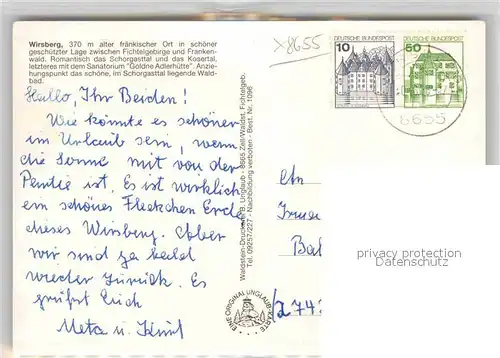 Wirsberg, 370 m alter fränkischer Ort in schöner
geschützter Lage zwischen Fichtelgebirge und Franken-
wald. Romantisch das Schorgasttal und das Kosertal,
letzteres mit dem Sanatorium "Goldne Adlerhütte". Anzie-
hungspunkt das schöne, im Schorgasttal liegende Wald-
bad.
x8655
10 DEUTSCHE BUNDESPOST
50 DEUTSCHE BUNDESPOST
8655
Hallo, Ihr Beiden!
Wie könnte es schöner
im Urlaub sein, wenn
die Sonne mit von der
Partie ist. Es ist wirklich
ein schönes Fleckchen Erde
dieses Wirsberg. Aber
wir sind ja bald
wieder zurück. Es
grüßt Euch
Meta u.
Waldstein-Druck B. Unglaub · 8665 Zell/Waldst. Fichtelgeb.
Tel. 09257/227 · Nachbildung verboten · Best. Nr. 1096
EINE ORIGINAL UNGLAUB-KARTE
An
Bal
274
privacy protection
Datenschutz